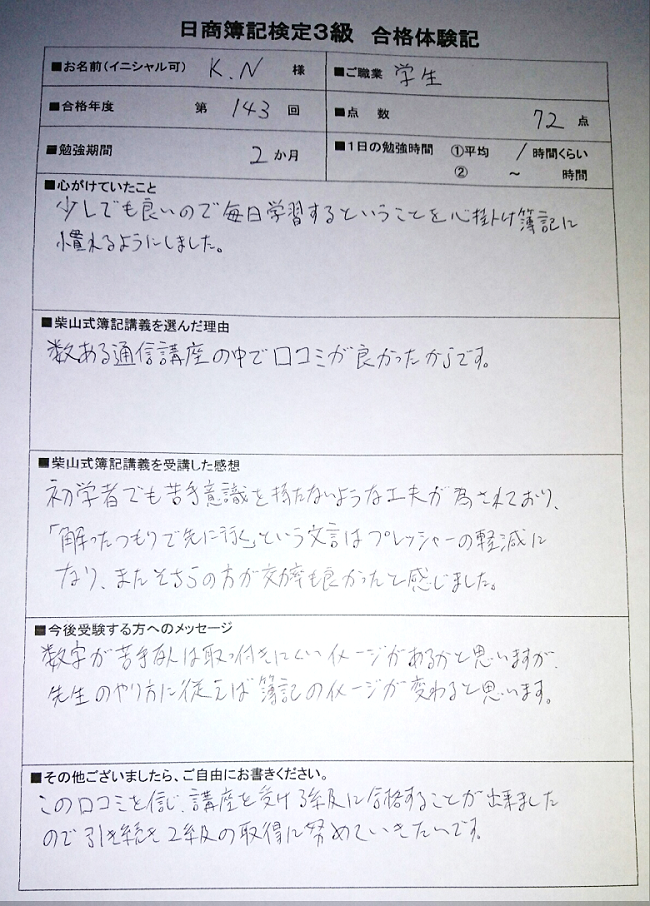 日商簿記検定3級 合格体験記
■お名前(イニシャル可) K.N 様 ■ご職業 学生
■合格年度 第 143 回 ■点数 72 点
■勉強期間 2 か月 ■1日の勉強時間 ①平均 1 時間くらい
② ～ 時間
■心がけていたこと
少しでも良いので毎日学習するということを心掛け簿記に
慣れるようにしました。
■柴山式簿記講義を選んだ理由
数ある通信講座の中で口コミが良かったからです。
■柴山式簿記講義を受講した感想
初学者でも苦手意識を持たないような工夫が為されており、
「解ったつもりで先に行く」という文言はプレッシャーの軽減に
なり、またそちらの方が効率も良かったと感じました。
■今後受験する方へのメッセージ
数字が苦手な人は取っ付きにくいイメージがあるかと思いますが、
先生のやり方に従えば簿記のイメージが変わると思います。
■その他ございましたら、ご自由にお書きください。
この口コミを信じ、講座を受け3級に合格することが出来ました
ので引き続き2級の取得に努めていきたいです。